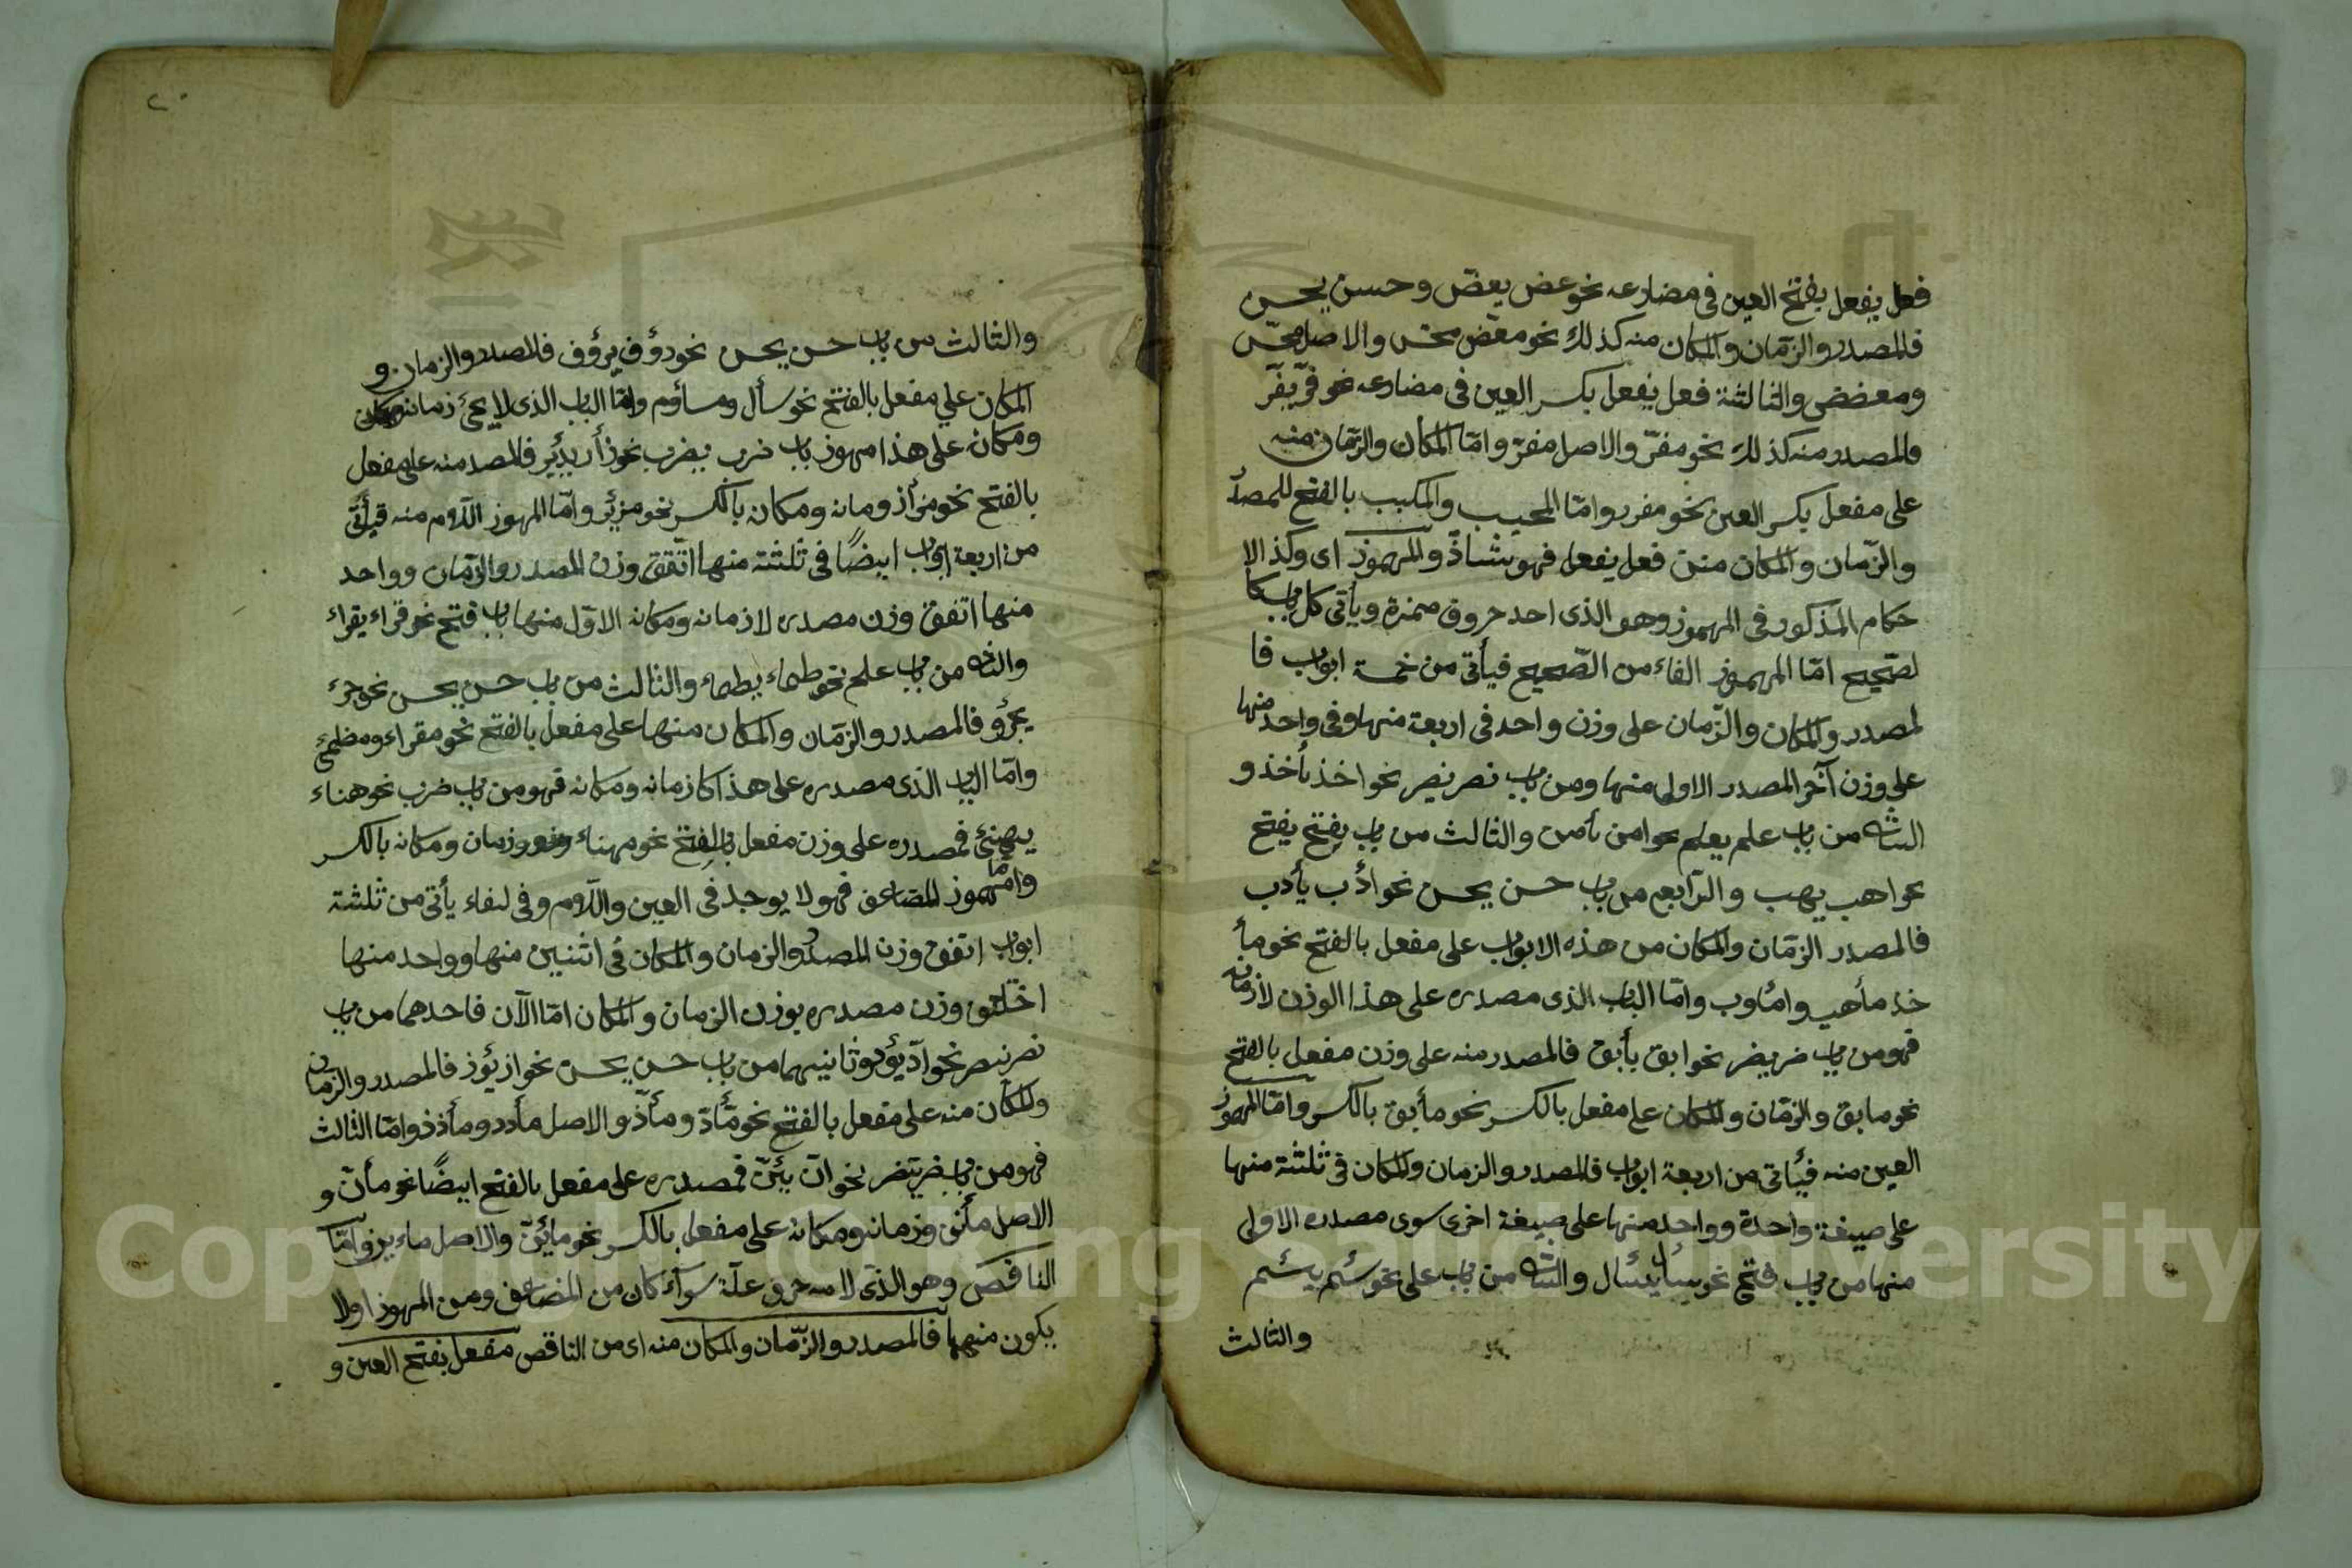 فعل يفعل بفتح العين فى مضارعه نحو عض يعضّ وحسن يحسن
فالمصدر والزمّان والمكان منه كذلك نحو معضّ محسّ والاصل محسّ
ومعضض والثالثة فعل يفعل بكسر العين فى مضارعه نحو فرّ يفرّ
فالمصدر منه كذلك نحو مفرّ والاصل مفرّ وامّا المكان والزمّان منه
على مفعل بكسر العين نحو مفرر وامّا المحيب والمكبب بالفتح للمصدر
والزّمان والمكان من فعل يفعل فهو شاذّ والمهموز اى وكذا الا
حكام المذكور فى المهموز وهو الذى احد حروف همزة ويأتى كل باب كا
لصّحيح امّا المهموز الفاء من الصّحيح فيأتى من خمسة ابواب فا
لمصدر والمكان والزّمان على وزن واحد فى اربعة منها وفى واحد منها
على وزن آخر المصدر الاولى منها ومن باب نصر ينصر نحو اخذ يأخذ و
الثانى من باب علم يعلم نحو امن يأمن والثالث من باب يفتح يفتح
نحو اهب يهب والرّابع من باب حسن يحسن نحو اذب يأدب
فالمصدر الزمّان والمكان من هذه الابواب على مفعل بالفتح نحو مأ
خذ مأهب وامأوب وامّا الباب الذى مصدره على هذا الوزن لا زمانه
فهو من باب ضرب يضرب نحو ابق يأبق فالمصدر منه على وزن مفعل بالفتح
نحو مابق والزمّان والمكان على مفعل بالكسر نحو مأبق بالكسر وامّا المهموز
العين منه فيأتى من اربعة ابواب فالمصدر والزمان والمكان فى ثلثة منها
على صيغة واحدة وواحد منها على صيغة اخرى سوى مصدره الاولى
منها من باب فتح نحو سأل يسئال والثانى من باب على نحو سئم يسئم
والثالث
٢٠
والثالث من باب حسن يحسن نحو رؤف يرؤف فالمصدر والزمان و
المكان علي مفعل بالفتح نحو مسأل ومسأوم وامّا الباب الذى لا يجئ زمانه
ومكانه على هذا مهموز باب ضرب يضرب نحو زأر يزئر فالمصد منه على مفعل
بالفتح نحو مزأر وزمانه ومكانه بالكسر نحو مزئر وامّا المهموز اللّام منه فيأتى
من اربعة ابواب ايضًا فى ثلثة منها اتّفق وزن المصدر والزمّان وواحد
منها اتفق وزن مصدره لا زمانه ومكانه الاوّل منها باب فتح نحو قراء يقراء
والثانى من باب علم نحو طماء يطماء والثالث من باب حسن يحسن نحو جرء
يجرؤ فالمصدر والزمّان والمكان منها على مفعل بالفتح نحو مقراء ومظمئ
وامّا الباب الذى مصدره على هذا كا زمانه ومكانه فهو من باب ضرب نحو هناء
يهنئ فمصدره على وزن مفعل بالفتح نحو مهناء وزمان ومكانه بالكسر
وامّا مهموز المضاعف فهو لا يوجد فى العين واللّام وفى لفاء يأتى من ثلثة
ابواب اتفق وزن المصدر والزمان والمكان فى اثنين منها وواحد منها
اختلف وزن مصدره بوزن الزمان والمكان امّا الآن فاحدهما من باب
نصر ينصر نحو ادّ يؤد وثانيهما من باب حسن يحسن نحو اذ يؤذ فالمصدر والزمان
والمكان منه على مفعل بالفتح نحو مأدّ ومأذّ والاصل مأدد ومأذذ وامّا الثالث
فهو من باب ضرب يضرب نحو انّ يئنّ فمصدره على مفعل بالفتح ايضًا نحو مأنّ و
الاصل مأنن وزمانه ومكانه على مفعل بالكسر نحو مائنّ والاصل وامّا
الناقص وهو الذى لامه حرف علّة سوآء كان من المضاعف ومن المهموز اولا
يكون منهما فالمصدر والزّمان والمكان منه اى من الناقص مفعل بفتح العين و
Copyright © King Saud University